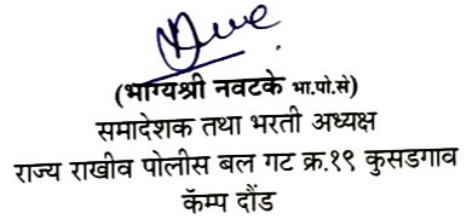 (भाग्यश्री नवटके भा.पो.से)
समादेशक तथा भरती अध्यक्ष
राज्य राखीव पोलीस बल गट क्र.१९ कुसडगाव
कॅम्प दौंड